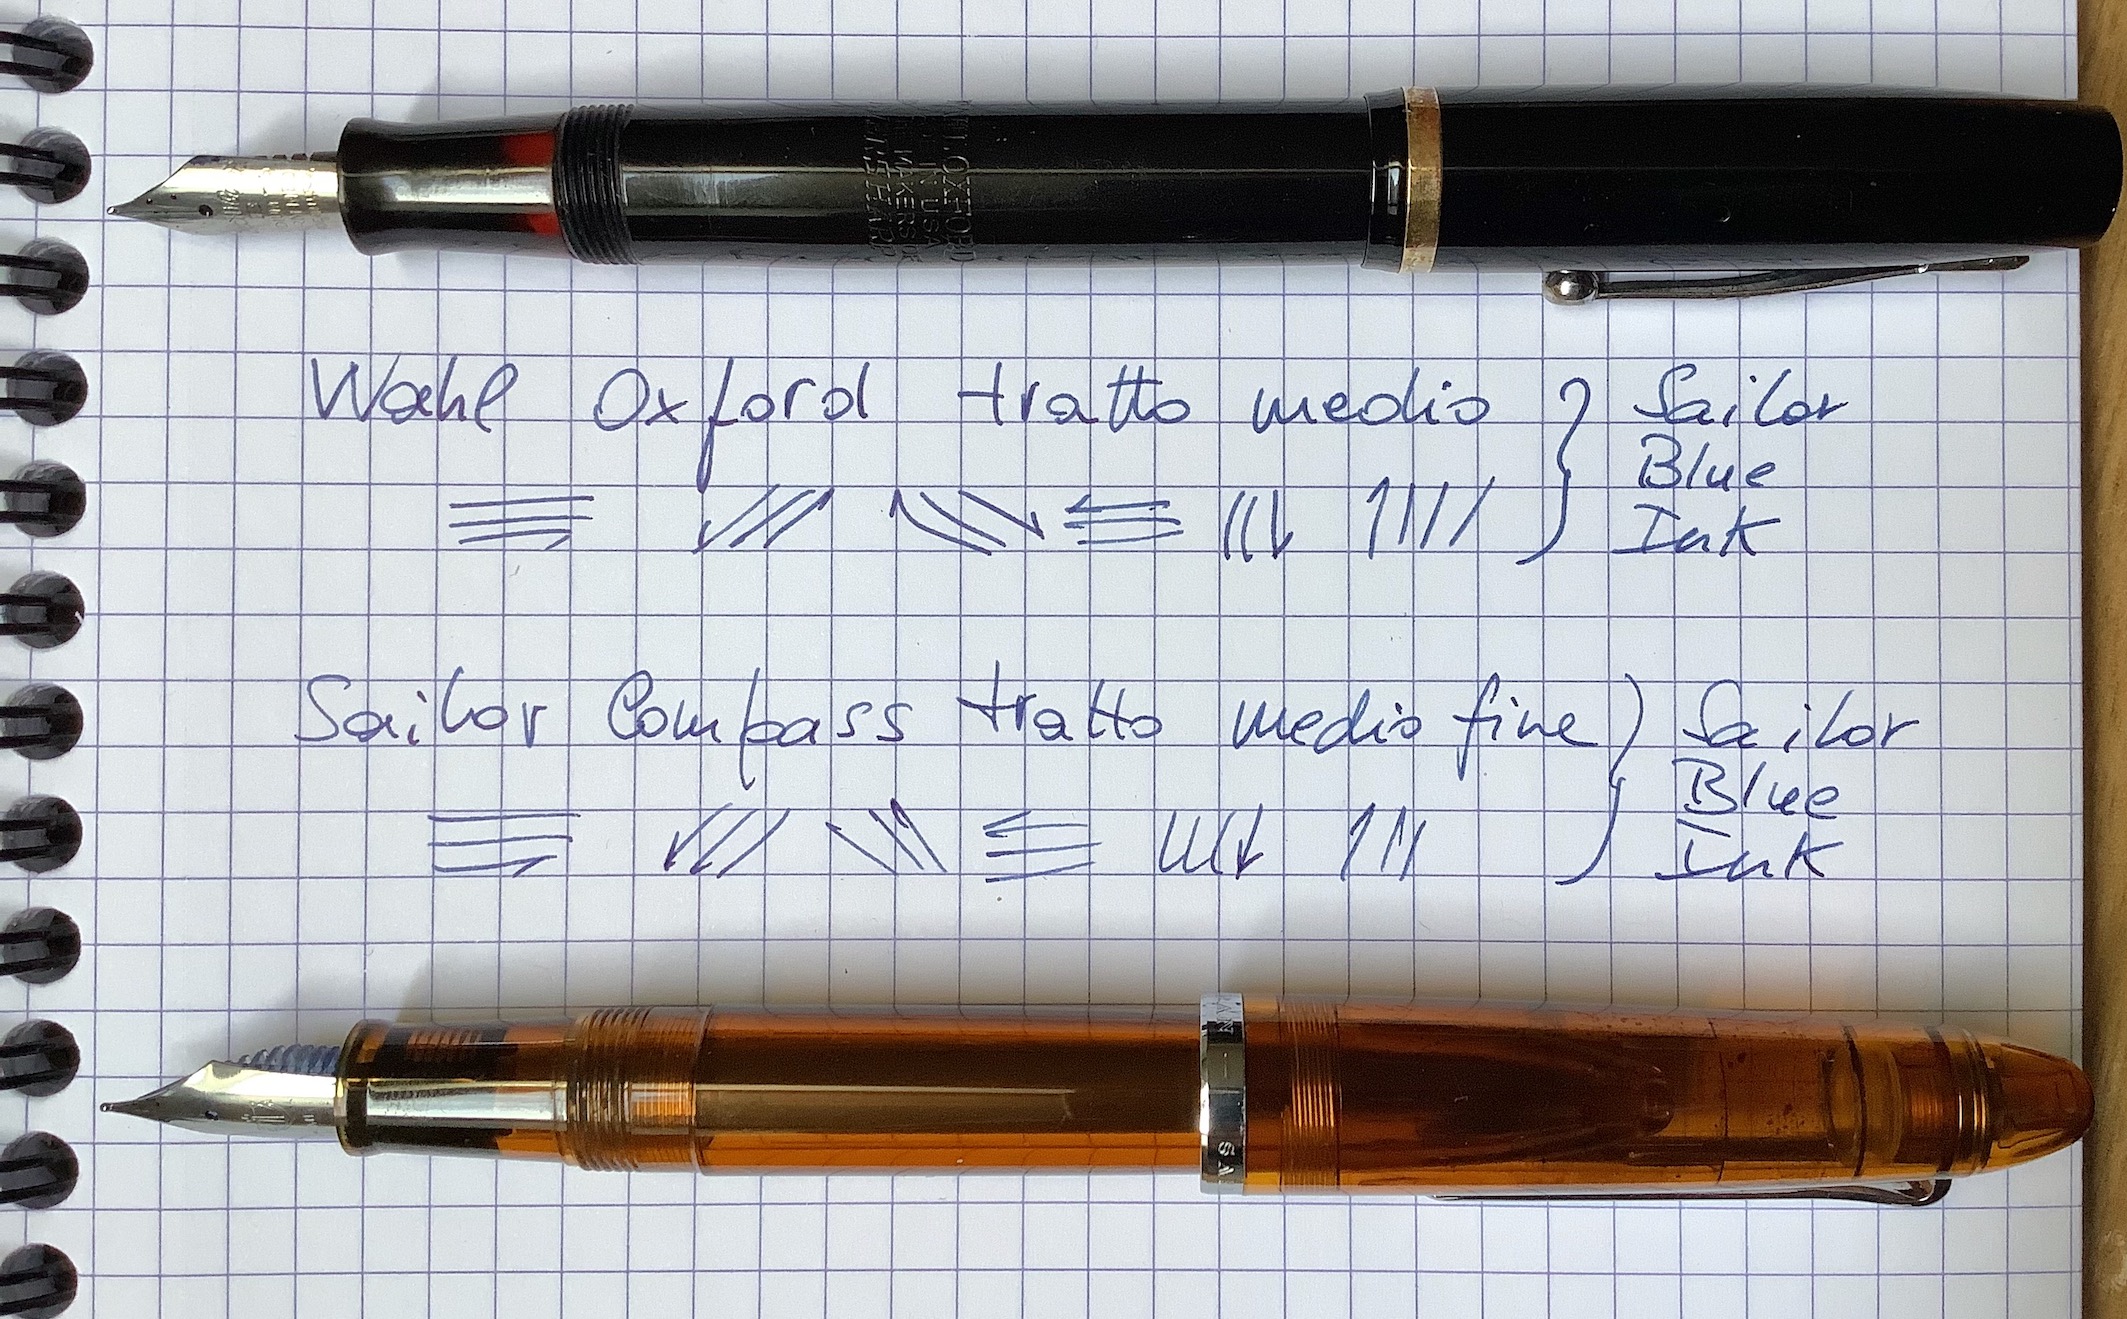 WAHL OXFORD
IN USA
MAKERS OF
EVERSHARP
Wahl Oxford tratto medio } Sailor
Blue
Ink
Sailor Compass tratto medio fine } Sailor
Blue
Ink
SA